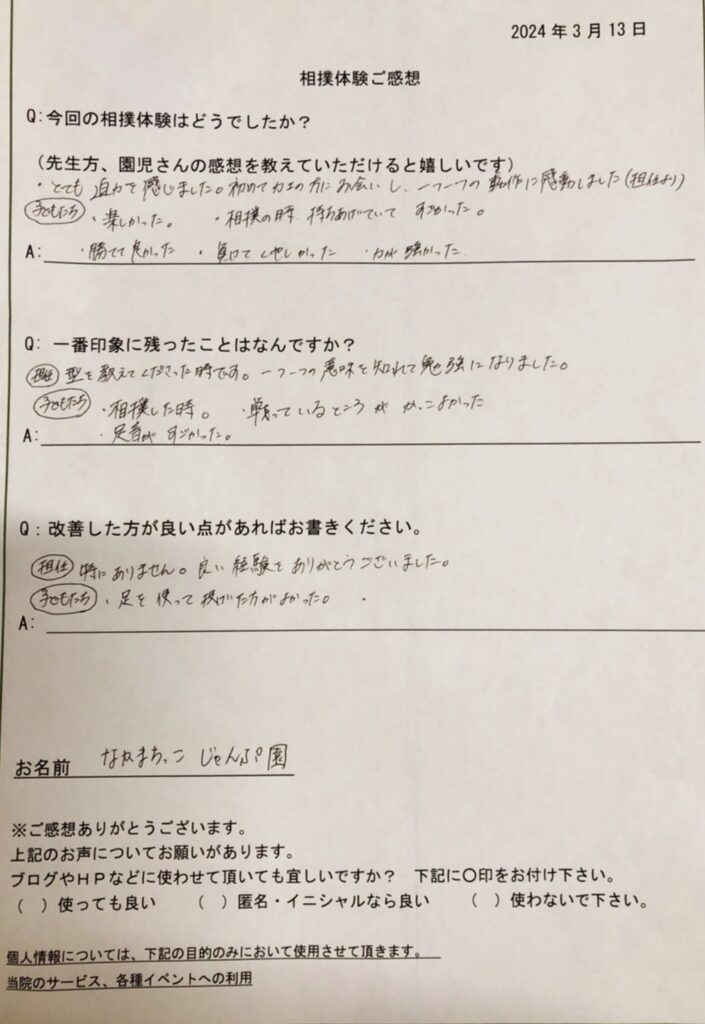 2024年3月13日
相撲体験ご感想
Q:今回の相撲体験はどうでしたか？
（先生方、園児さんの感想を教えていただけると嬉しいです）
・とても迫力を感じました。初めて力士の方にお会いし、一つ一つの動作に感動しました(担任より)
子どもたち ・楽しかった。 ・相撲の時、持ちあげていてすごかった。
A: ・勝てて良かった ・負けてくやしかった ・力が強かった
Q: 一番印象に残ったことはなんですか？
担任 型を教えてくださった時です。一つ一つの意味を知れて勉強になりました。
子どもたち ・相撲した時。 ・戦っているところがかっこよかった
A: ・足音がすごかった。
Q：改善した方が良い点があればお書きください。
担任 特にありません。良い経験をありがとうございました。
子どもたち ・足を使って投げた方がよかった。 ・
A:
お名前 なかまちっこじゃんぷ園
※ご感想ありがとうございます。
上記のお声についてお願いがあります。
ブログやＨＰなどに使わせて頂いても宜しいですか？ 下記に〇印をお付け下さい。
（ ）使っても良い （ ）匿名・イニシャルなら良い （ ）使わないで下さい。
個人情報については、下記の目的のみにおいて使用させて頂きます。
当院のサービス、各種イベントへの利用